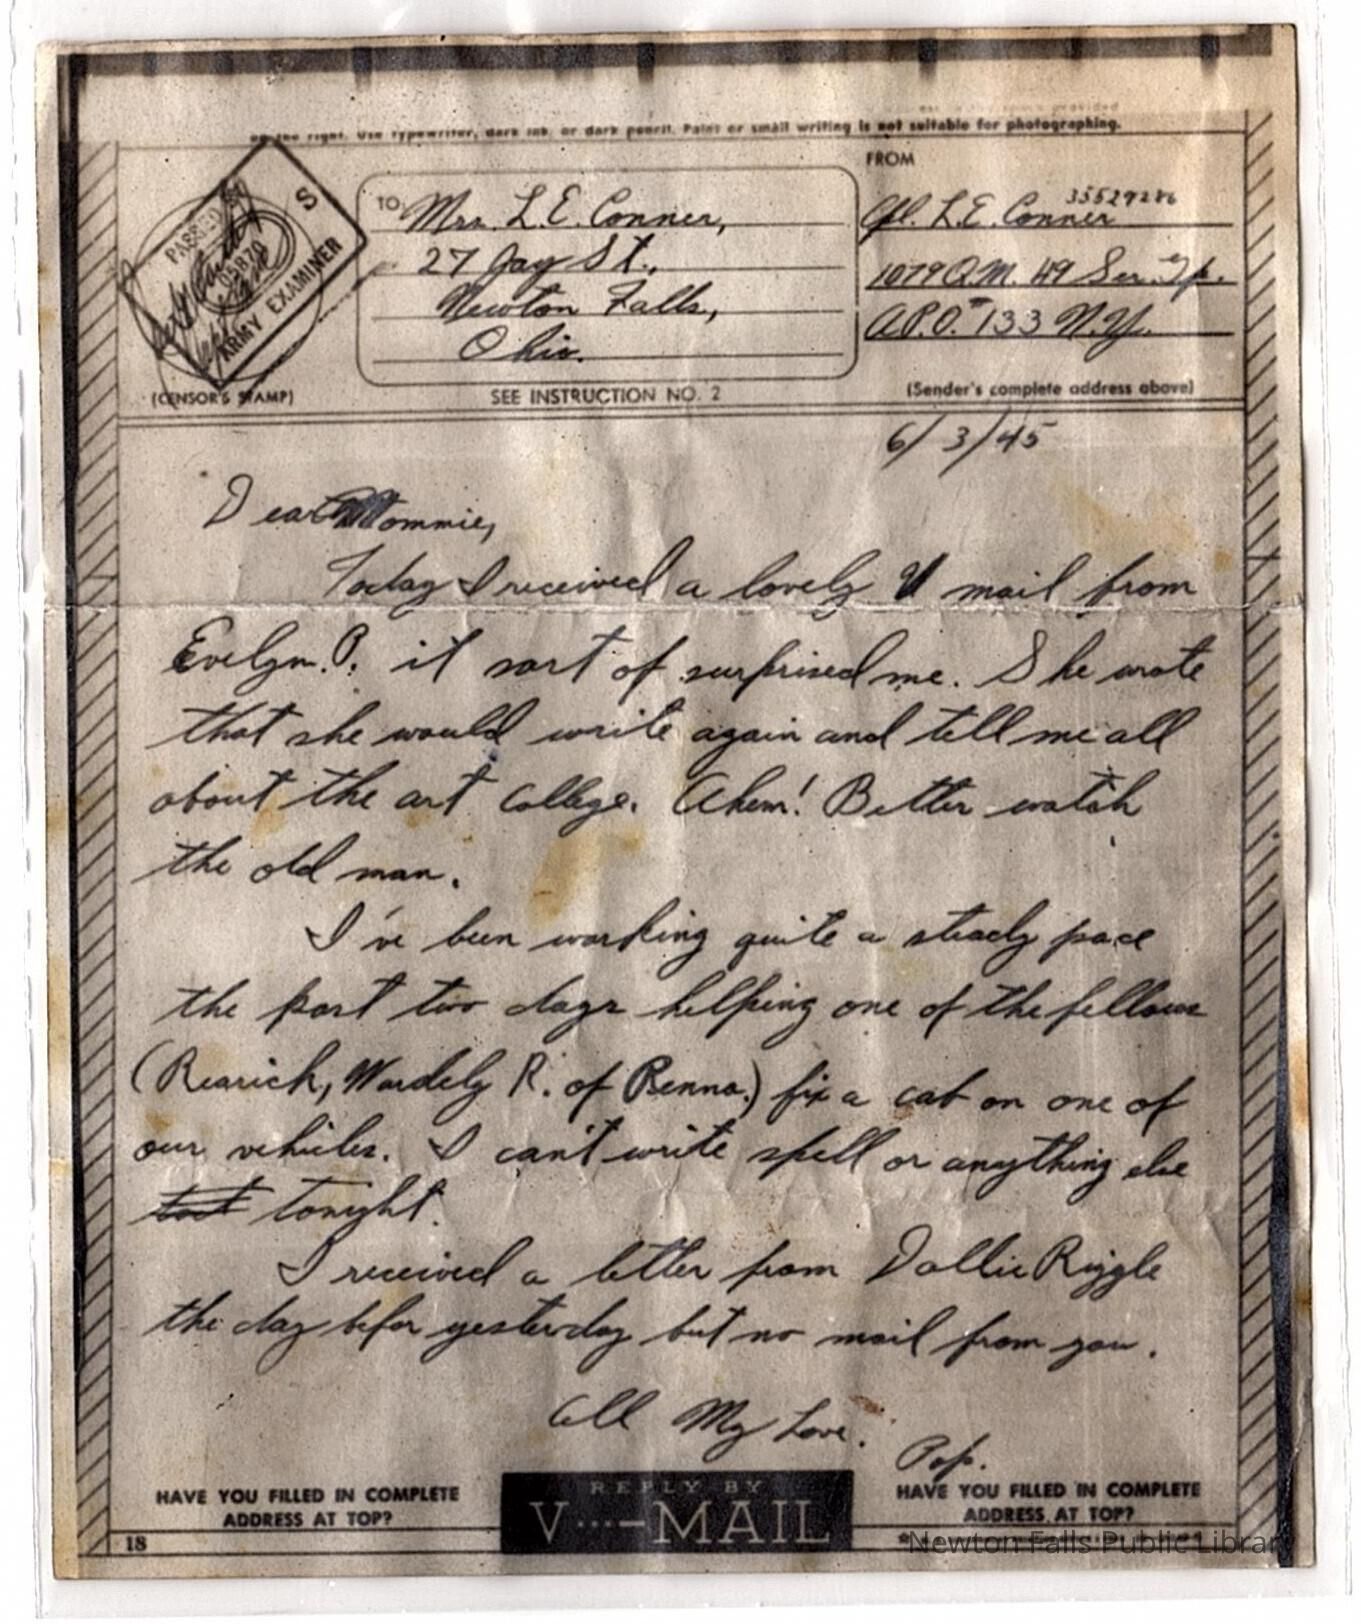 on the right. Use typewriter, dark ink, or dark pencil. Faint or small writing is not suitable for photographing.
PASSED BY
S
05870
ARMY EXAMINER
(CENSOR'S STAMP)
TO
Mrs. L.E. Conner,
27 Jay St.,
Newton Falls,
Ohio.
SEE INSTRUCTION NO. 2
FROM
35529286
Cpl. L.E. Conner
1079 Q.M.
A.P.O. #133 N.Y.
(Sender's complete address above)
6/3/45
Dear Mommie,
Today I received a lovely V mail from
Evelyn. P. it sort of surprised me. She wrote
that she would write again and tell me all
about the art college. Ahem! Better watch
the old man.
I've been working quite a steady pace
the past two days helping one of the fellows
(Rearick, Wardely R. of Penna.) fix a cab on one of
our vehicles. I can't write spell or anything else
tonight.
I received a letter from Dollie Riggle
the day befor yesterday but no mail from you.
All My Love.
Pop.
HAVE YOU FILLED IN COMPLETE
ADDRESS AT TOP?
REPLY BY
V···—MAIL
HAVE YOU FILLED IN COMPLETE
ADDRESS AT TOP?
18
Newton Falls Public Library